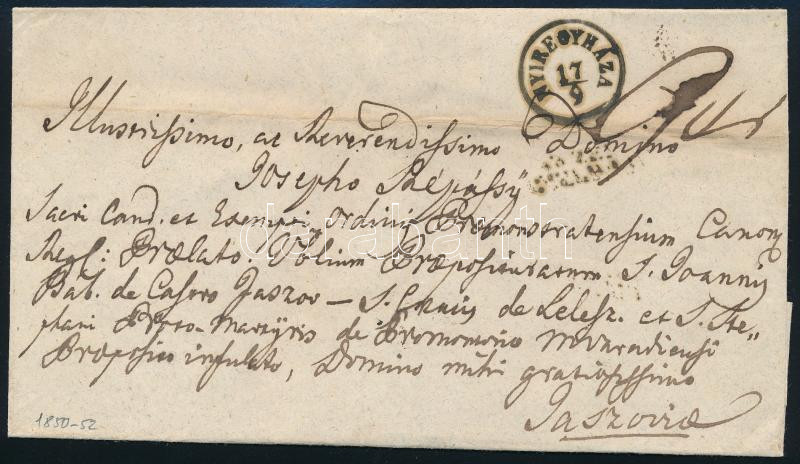 NYIREGYHÁZA
17
9
Illustrissimo, ac Reverendissimo Domino
Josepho Répássÿ
Sacri Cand. et Exempti Ordinis Præmonstratensium Canon
Regl: Prælato. Vblium Præpositurarum S. Joannis
Bab. de Castro Jaszov — S. Crucis de Lelesz. et S. Ste„
phani Proto-Martyris de Promontorio Mvaradiensi
Præposito infulato, Domino mihi gratiosissimo
Jaszoviæ
darabanth
1850-52